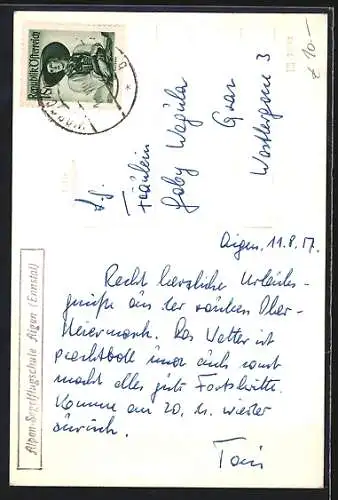 € 10.-
Republik Österreich
Fräulein
Gaby
Graz
3
Aigen, 11.8.57.
Recht herzliche Urlaubs-
grüße aus der schönen Ober-
steiermark. Das Wetter ist
prachtvoll und auch sonst
macht alles gute Fortschritte.
Komme am 20. wieder
zurück.
Toni
Alpen-Segelflugschule Aigen (Ennstal)